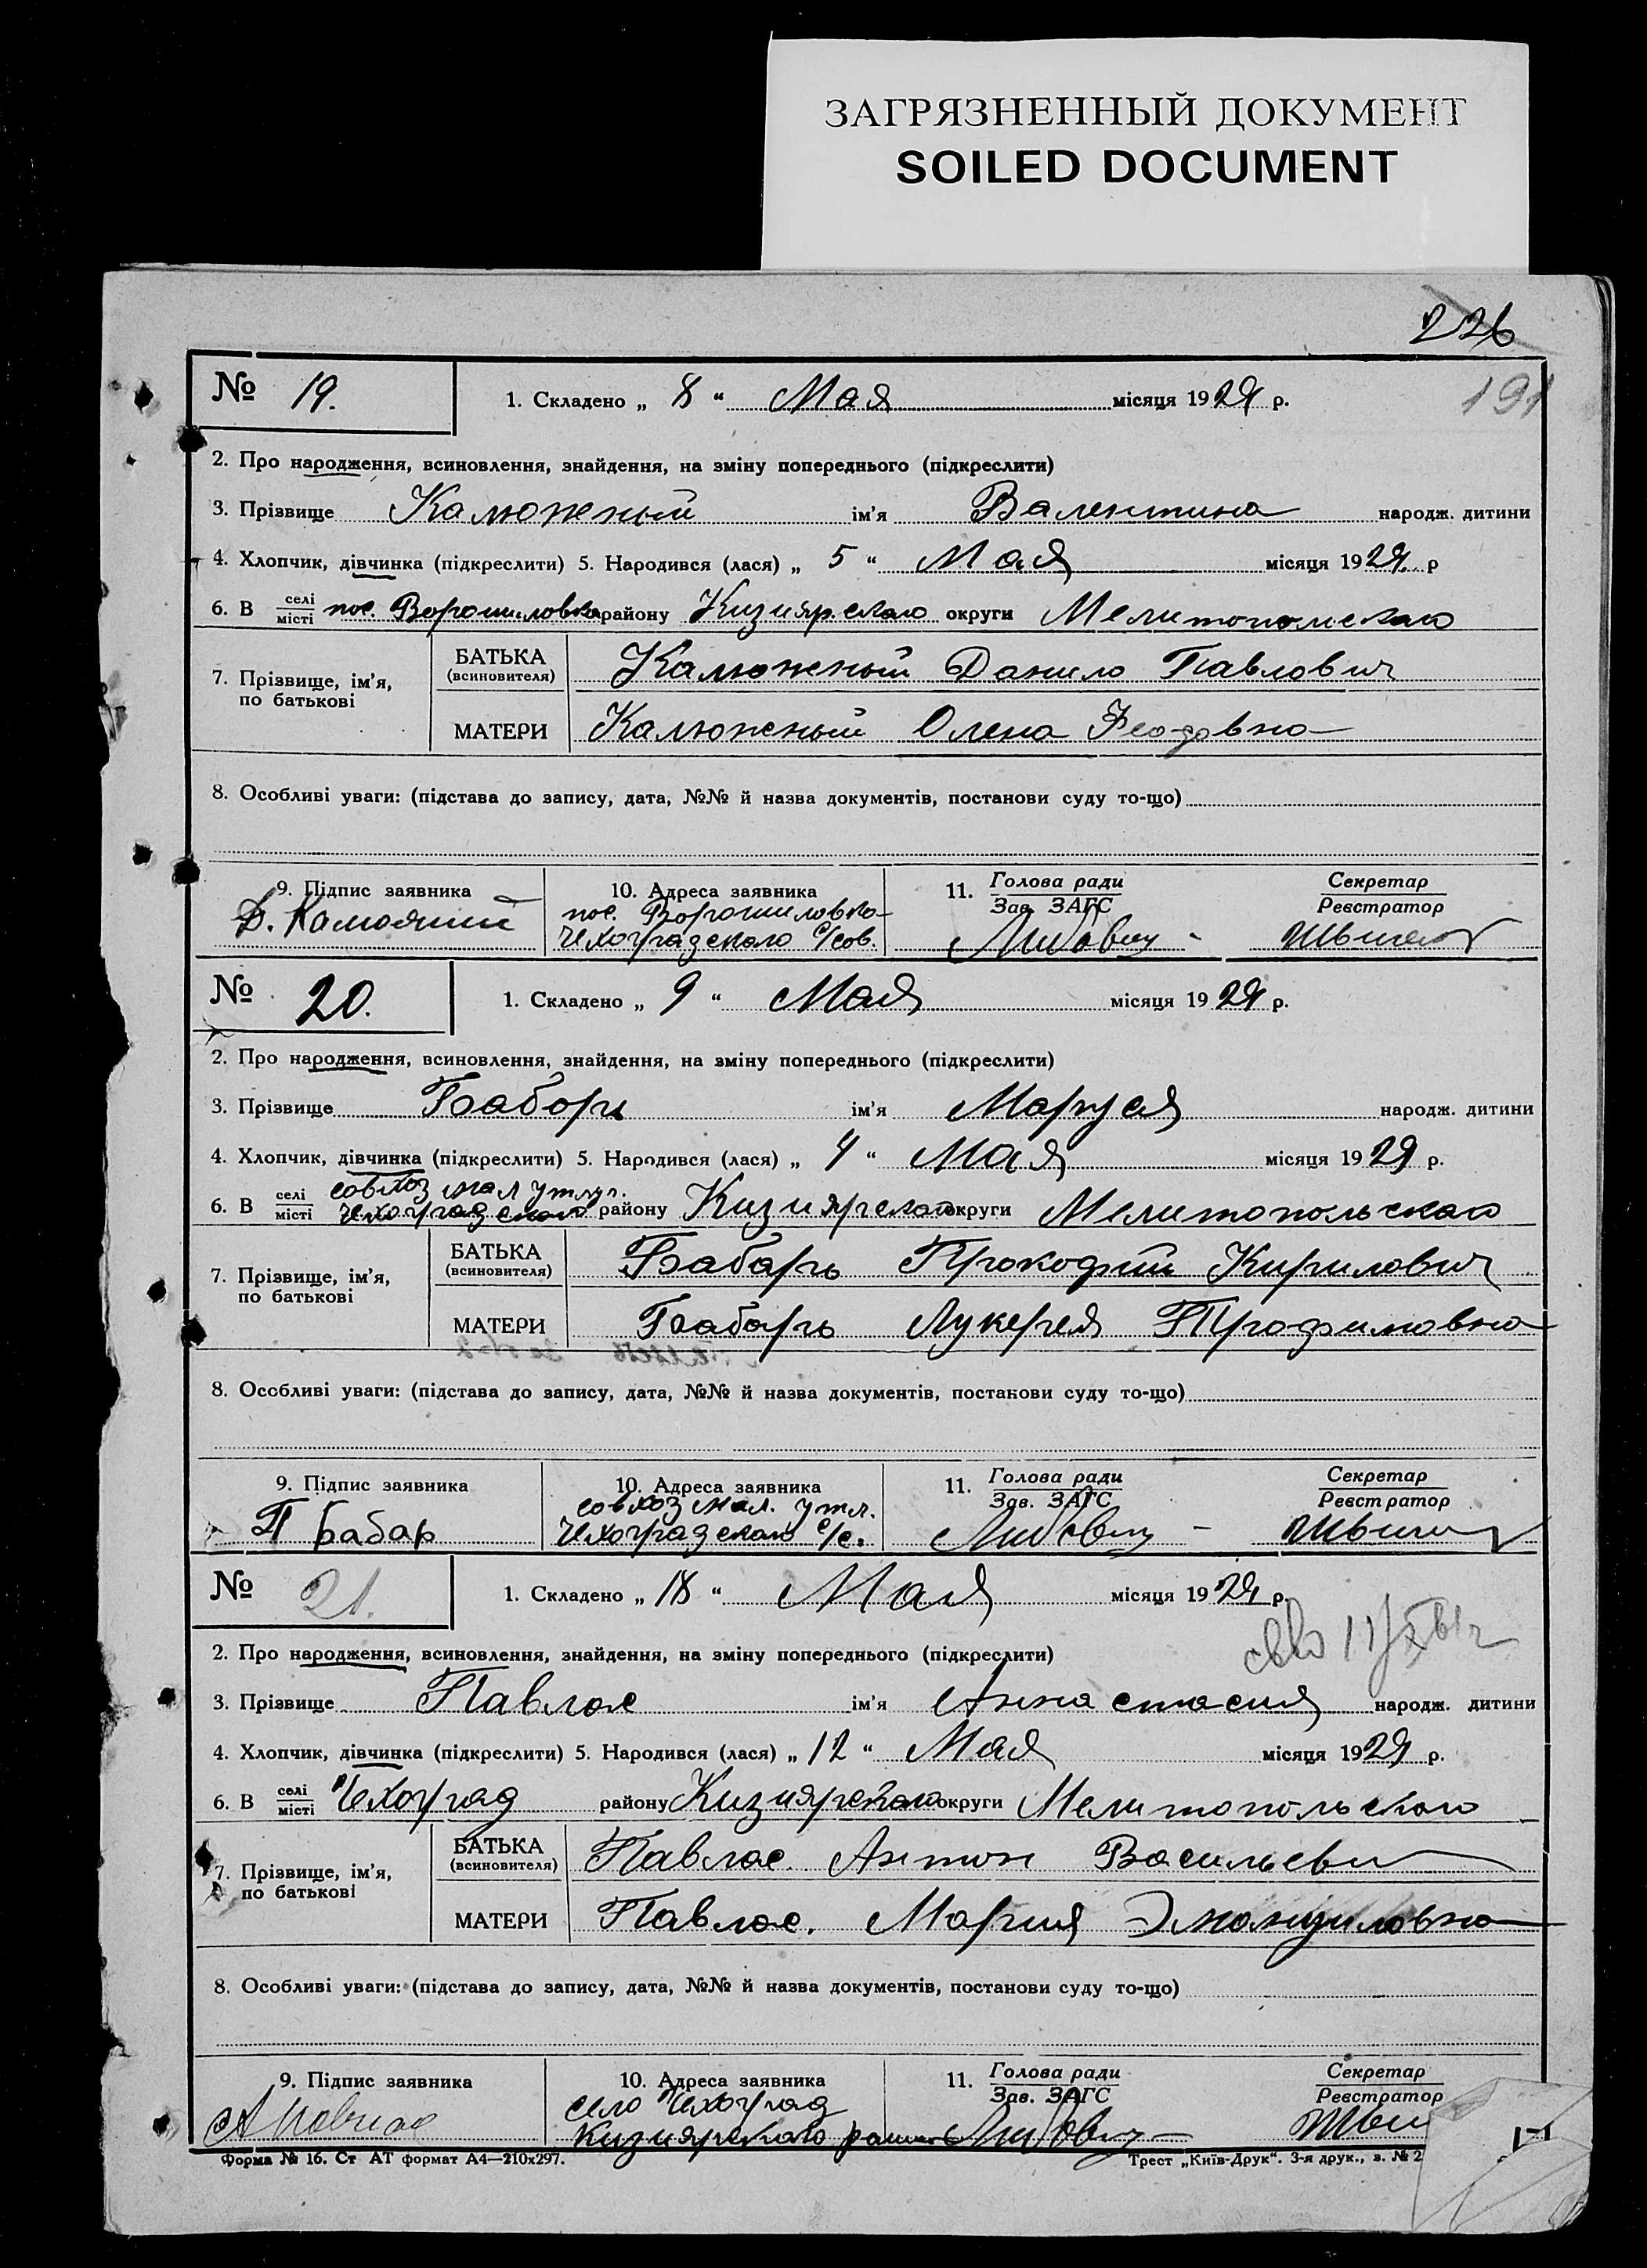 ЗАГРЯЗНЕННЫЙ ДОКУМЕНТ
SOILED DOCUMENT
226
191
№ 19. 1. Складено „ 8 “ Мая місяця 1929 р.
2. Про народження, всиновлення, знайдення, на зміну попереднього (підкреслити)
3. Прізвище Калюжный ім'я Валентина народж. дитини
4. Хлопчик, дівчинка (підкреслити) 5. Народився (лася) „ 5 “ Мая місяця 1929. р
6. В селі місті пос. Ворошиловка району Кизиярского округи Мелитопольского
7. Прізвище, ім'я, по батькові
БАТЬКА (всиновителя) Калюжный Данило Павлович
МАТЕРИ Калюжный Олена
8. Особливі уваги: (підстава до запису, дата, №№ й назва документів, постанови суду то-що)
9. Підпис заявника 10. Адреса заявника 11. Голова ради Зав. ЗАГС Секретар Реєстратор
пос. Ворошиловка
Чехоградского с/сов.
№ 20. 1. Складено „ 9 “ Мая місяця 1929 р.
2. Про народження, всиновлення, знайдення, на зміну попереднього (підкреслити)
3. Прізвище Бабарь ім'я Маруся народж. дитини
4. Хлопчик, дівчинка (підкреслити) 5. Народився (лася) „ 4 “ Мая місяця 1929 р.
совхоз
6. В селі місті Чехоградского району Кизиярского округи Мелитопольского
7. Прізвище, ім'я, по батькові
БАТЬКА (всиновителя) Бабарь Прокофий Кирилович
МАТЕРИ Бабарь Лукерея Трофимовна
8. Особливі уваги: (підстава до запису, дата, №№ й назва документів, постанови суду то-що)
9. Підпис заявника 10. Адреса заявника 11. Голова ради Зав. ЗАГС Секретар Реєстратор
совхоз
П Бабар Чехоградского с/с.
№ 21. 1. Складено „ 18 “ Мая місяця 1929 р.
2. Про народження, всиновлення, знайдення, на зміну попереднього (підкреслити)
3. Прізвище Павлас ім'я Анастасия народж. дитини
4. Хлопчик, дівчинка (підкреслити) 5. Народився (лася) „ 12 “ Мая місяця 1929 р.
6. В селі місті Чехоград району Кизиярского округи Мелитопольского
7. Прізвище, ім'я, по батькові
БАТЬКА (всиновителя) Павлас Антон Васильевич
МАТЕРИ Павлас. Мария
8. Особливі уваги: (підстава до запису, дата, №№ й назва документів, постанови суду то-що)
9. Підпис заявника 10. Адреса заявника 11. Голова ради Зав. ЗАГС Секретар Реєстратор
село Чехоград
А Павлас Кизиярского
Форма № 16. Ст АТ формат А4—210х297. Трест „Київ-Друк“. 3-я друк., з. № 2